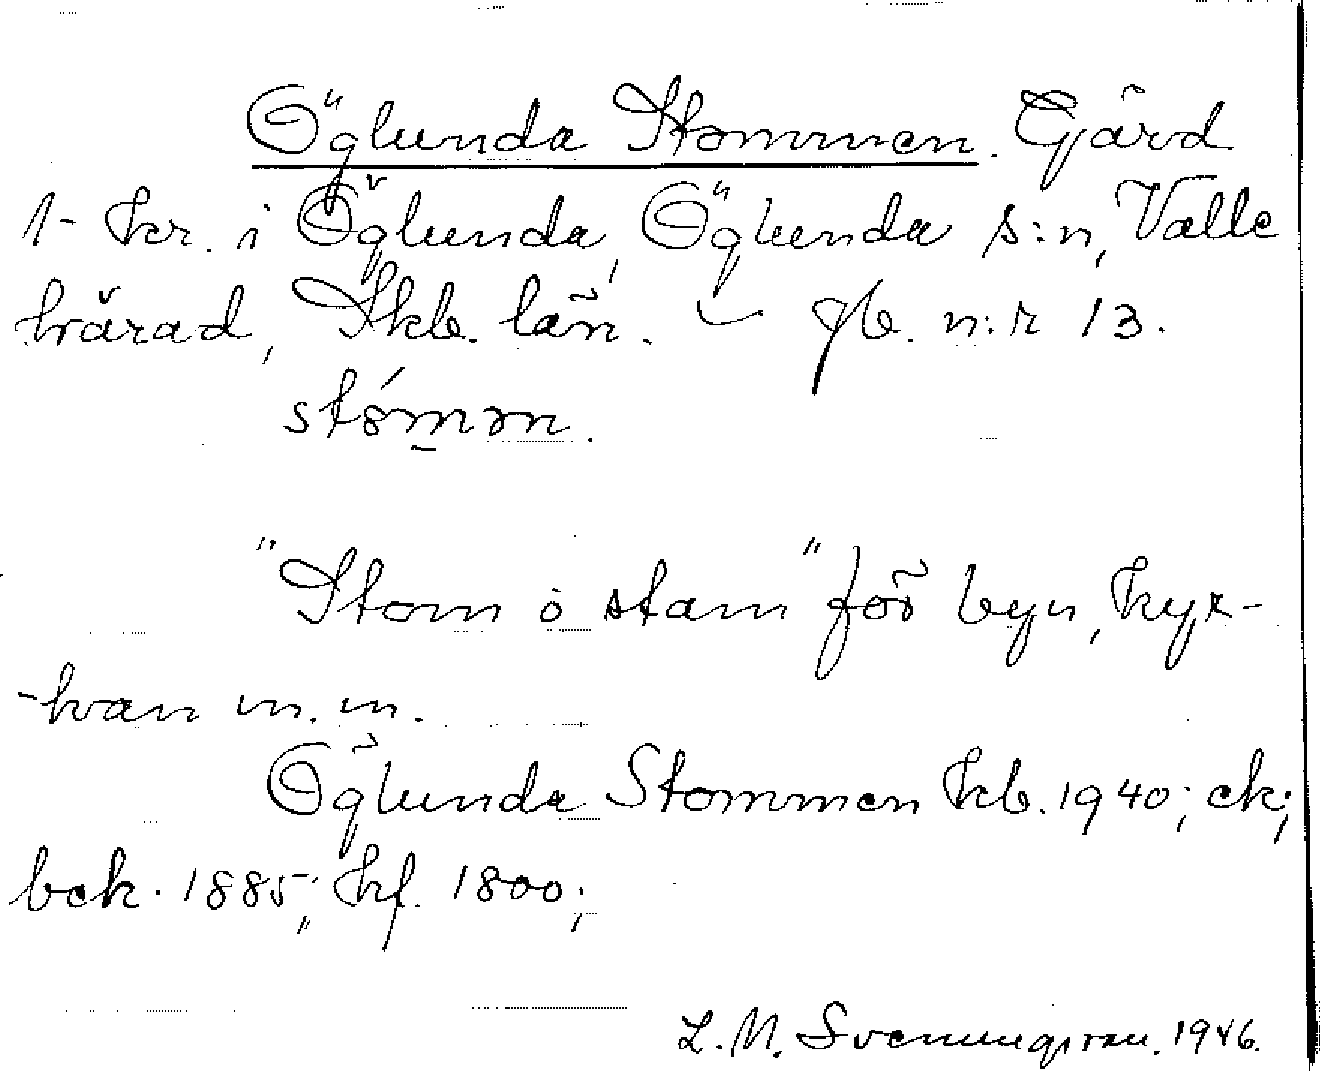 Öglunda Stommen. Gård
1- kr. i Öglunda, Öglunda s:n, Valle
härad, Skb. län. gb. n:r 13.
stómən.
"Stom o stam" för byn, kyr-
-kan m.m.
Öglunda Stommen kb. 1940; ek;
bek. 1885; kf. 1800;
L. M. Svenungsson. 1946.